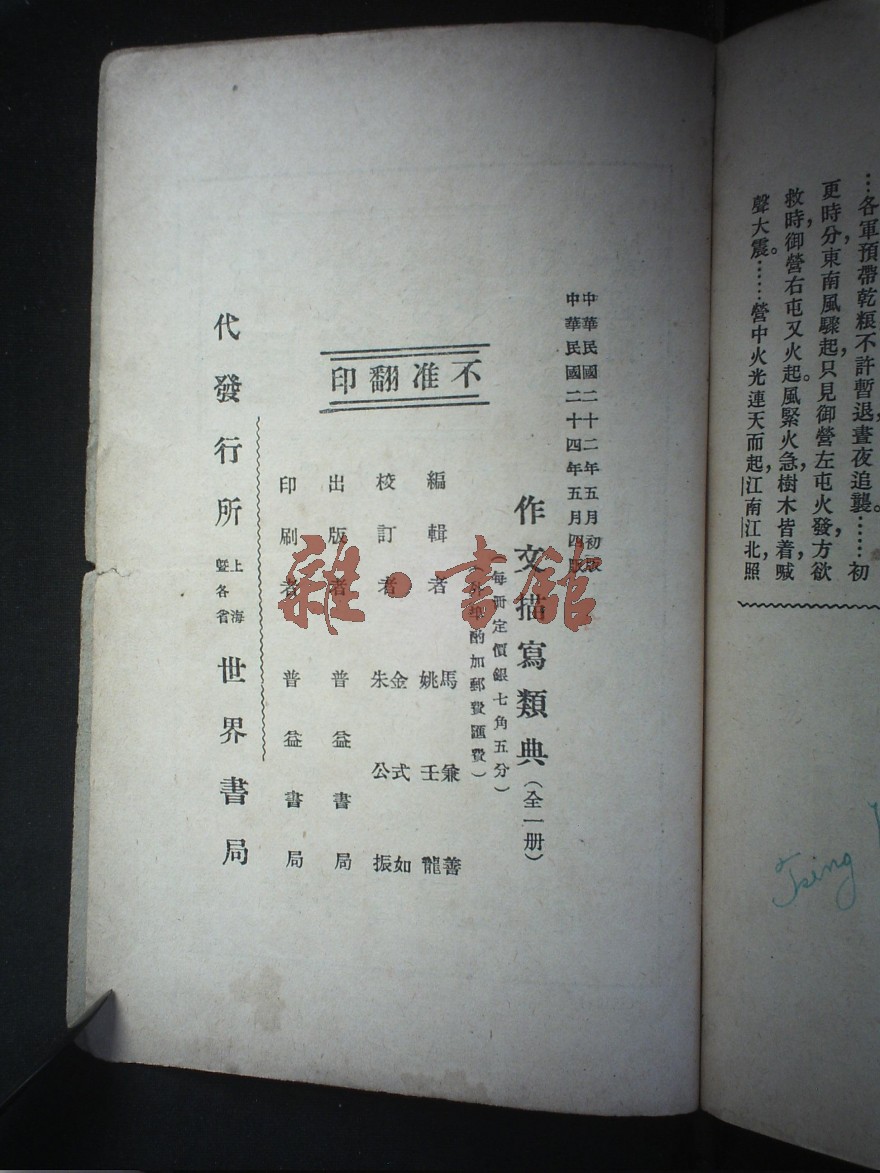 …各軍預帶乾糧不許暫退，晝夜追襲。……初
更時分，東南風驟起，只見御營左屯火發，方欲
救時，御營右屯又火起。風緊火急，樹木皆着，喊
聲大震。……營中火光連天而起，江南江北，照
中華民國二十二年五月初版
中華民國二十四年五月四版
作文描寫類典（全一册）
（每冊定價銀七角五分）
（外埠酌加郵費匯費）
不准翻印
編輯者 馬兼善
姚壬龍
校訂者 金式如
朱公振
出版者 普益書局
印刷者 普益書局
代發行所 上海暨各省 世界書局
雜·書館
Tsing